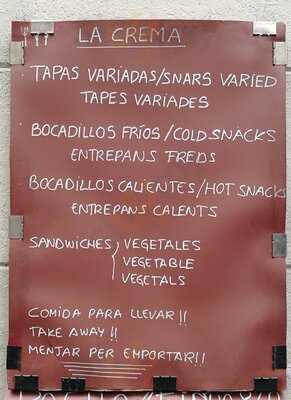 LA CREMA
TAPAS VARIADAS/SNARS VARIED
TAPES VARIADES
BOCADILLOS FRÍOS/COLD SNACKS
ENTREPANS FREDS
BOCADILLOS CALIENTES/HOT SNACKS
ENTREPANS CALENTS
SANDWICHES VEGETALES
VEGETABLE
VEGETALS
COMIDA PARA LLEVAR!!
TAKE AWAY!!
MENJAR PER EMPORTAR!!